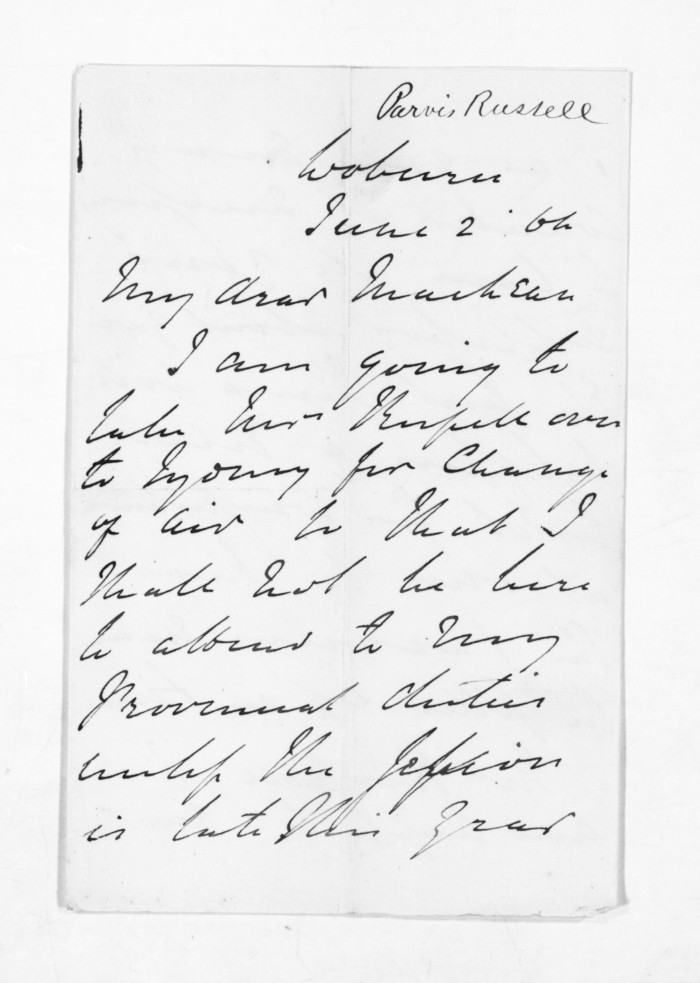 Purvis Russell
Woburn
June 2. 64
My dear MacLean
I am going to
take Mrs Russell over
to Sydney for Change
of air so that I
shall not be here
to attend to my
Provincial duties
unless the Session
is late this year